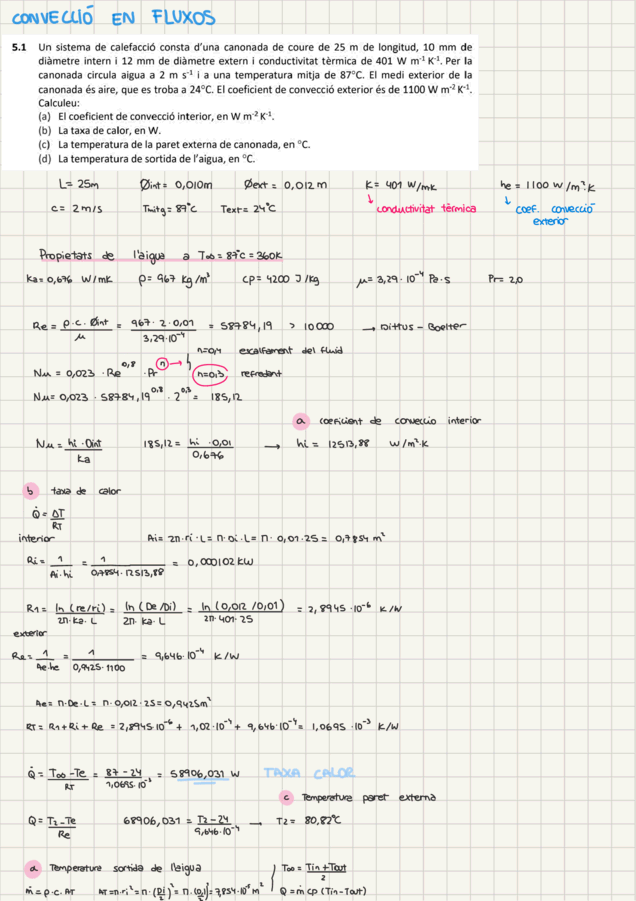 CONVECCIÓ EN FLUXOS
5.1 Un sistema de calefacció consta d'una canonada de coure de 25 m de longitud, 10 mm de
diàmetre intern i 12 mm de diàmetre extern i conductivitat tèrmica de 401 W m⁻¹ K⁻¹. Per la
canonada circula aigua a 2 m s⁻¹ i a una temperatura mitja de 87°C. El medi exterior de la
canonada és aire, que es troba a 24°C. El coeficient de convecció exterior és de 1100 W m⁻² K⁻¹.
Calculeu:
(a) El coeficient de convecció interior, en W m⁻² K⁻¹.
(b) La taxa de calor, en W.
(c) La temperatura de la paret externa de canonada, en °C.
(d) La temperatura de sortida de l'aigua, en °C.
L= 25m Øint= 0,010m Øext= 0,012m K= 401 W/mk he = 1100 W/m²·K
c= 2m/s Tmitg= 87°C Text= 24°C conductivitat tèrmica coef. convecció
exterior
Propietats de l'aigua a T∞= 87°C = 360K
ka= 0,676 W/mK ρ= 967 kg/m³ cp= 4200 J/kg μ= 3,29·10⁻⁴ Pa·s Pr= 2,0
Re = ρ·c·Øint / μ = 967·2·0,01 / 3,29·10⁻⁴ = 58784,19 > 10000 → Dittus-Boelter
n=0,4 escalfament del fluid
Nu = 0,023 · Re^0,8 · Pr^n → n=0,3 refredant
Nu= 0,023 · 58784,19^0,8 · 2^0,3 = 185,12
a coeficient de convecció interior
Nu = hi·Dint / ka 185,12 = hi·0,01 / 0,676 → hi = 12513,88 W/m²·K
b taxa de calor
Q̇ = ΔT / RT
interior Ai= 2π·ri·L = π·Di·L= π·0,01·25 = 0,7854 m²
Ri = 1 / Ai·hi = 1 / 0,7854·12513,88 = 0,000102 KW
R1 = ln (re/ri) / 2π·ka·L = ln (De/Di) / 2π·ka·L = ln (0,012/0,01) / 2π·401·25 = 2,8945·10⁻⁶ K/W
exterior
Re = 1 / Ae·he = 1 / 0,9425·1100 = 9,646·10⁻⁴ K/W
Ae= π·De·L = π·0,012·25 = 0,9425m²
RT = R1+Ri+Re = 2,8945·10⁻⁶ + 1,02·10⁻⁴ + 9,646·10⁻⁴ = 1,0695·10⁻³ K/W
Q̇ = T∞-Te / RT = 87-24 / 1,0695·10⁻³ = 58906,031 W TAXA CALOR
c Temperatura paret externa
Q = T2-Te / Re 68906,031 = T2-24 / 9,646·10⁻⁴ → T2 = 80,82°C
d Temperatura sortida de l'eigua T∞ = Tin+Tout / 2
ṁ = ρ·c·AT AT=π·ri² = π·(Di/2)² = π·(0,01/2)² = 7,854·10⁻⁵ m² Q̇ = ṁ cp (Tin-Tout)